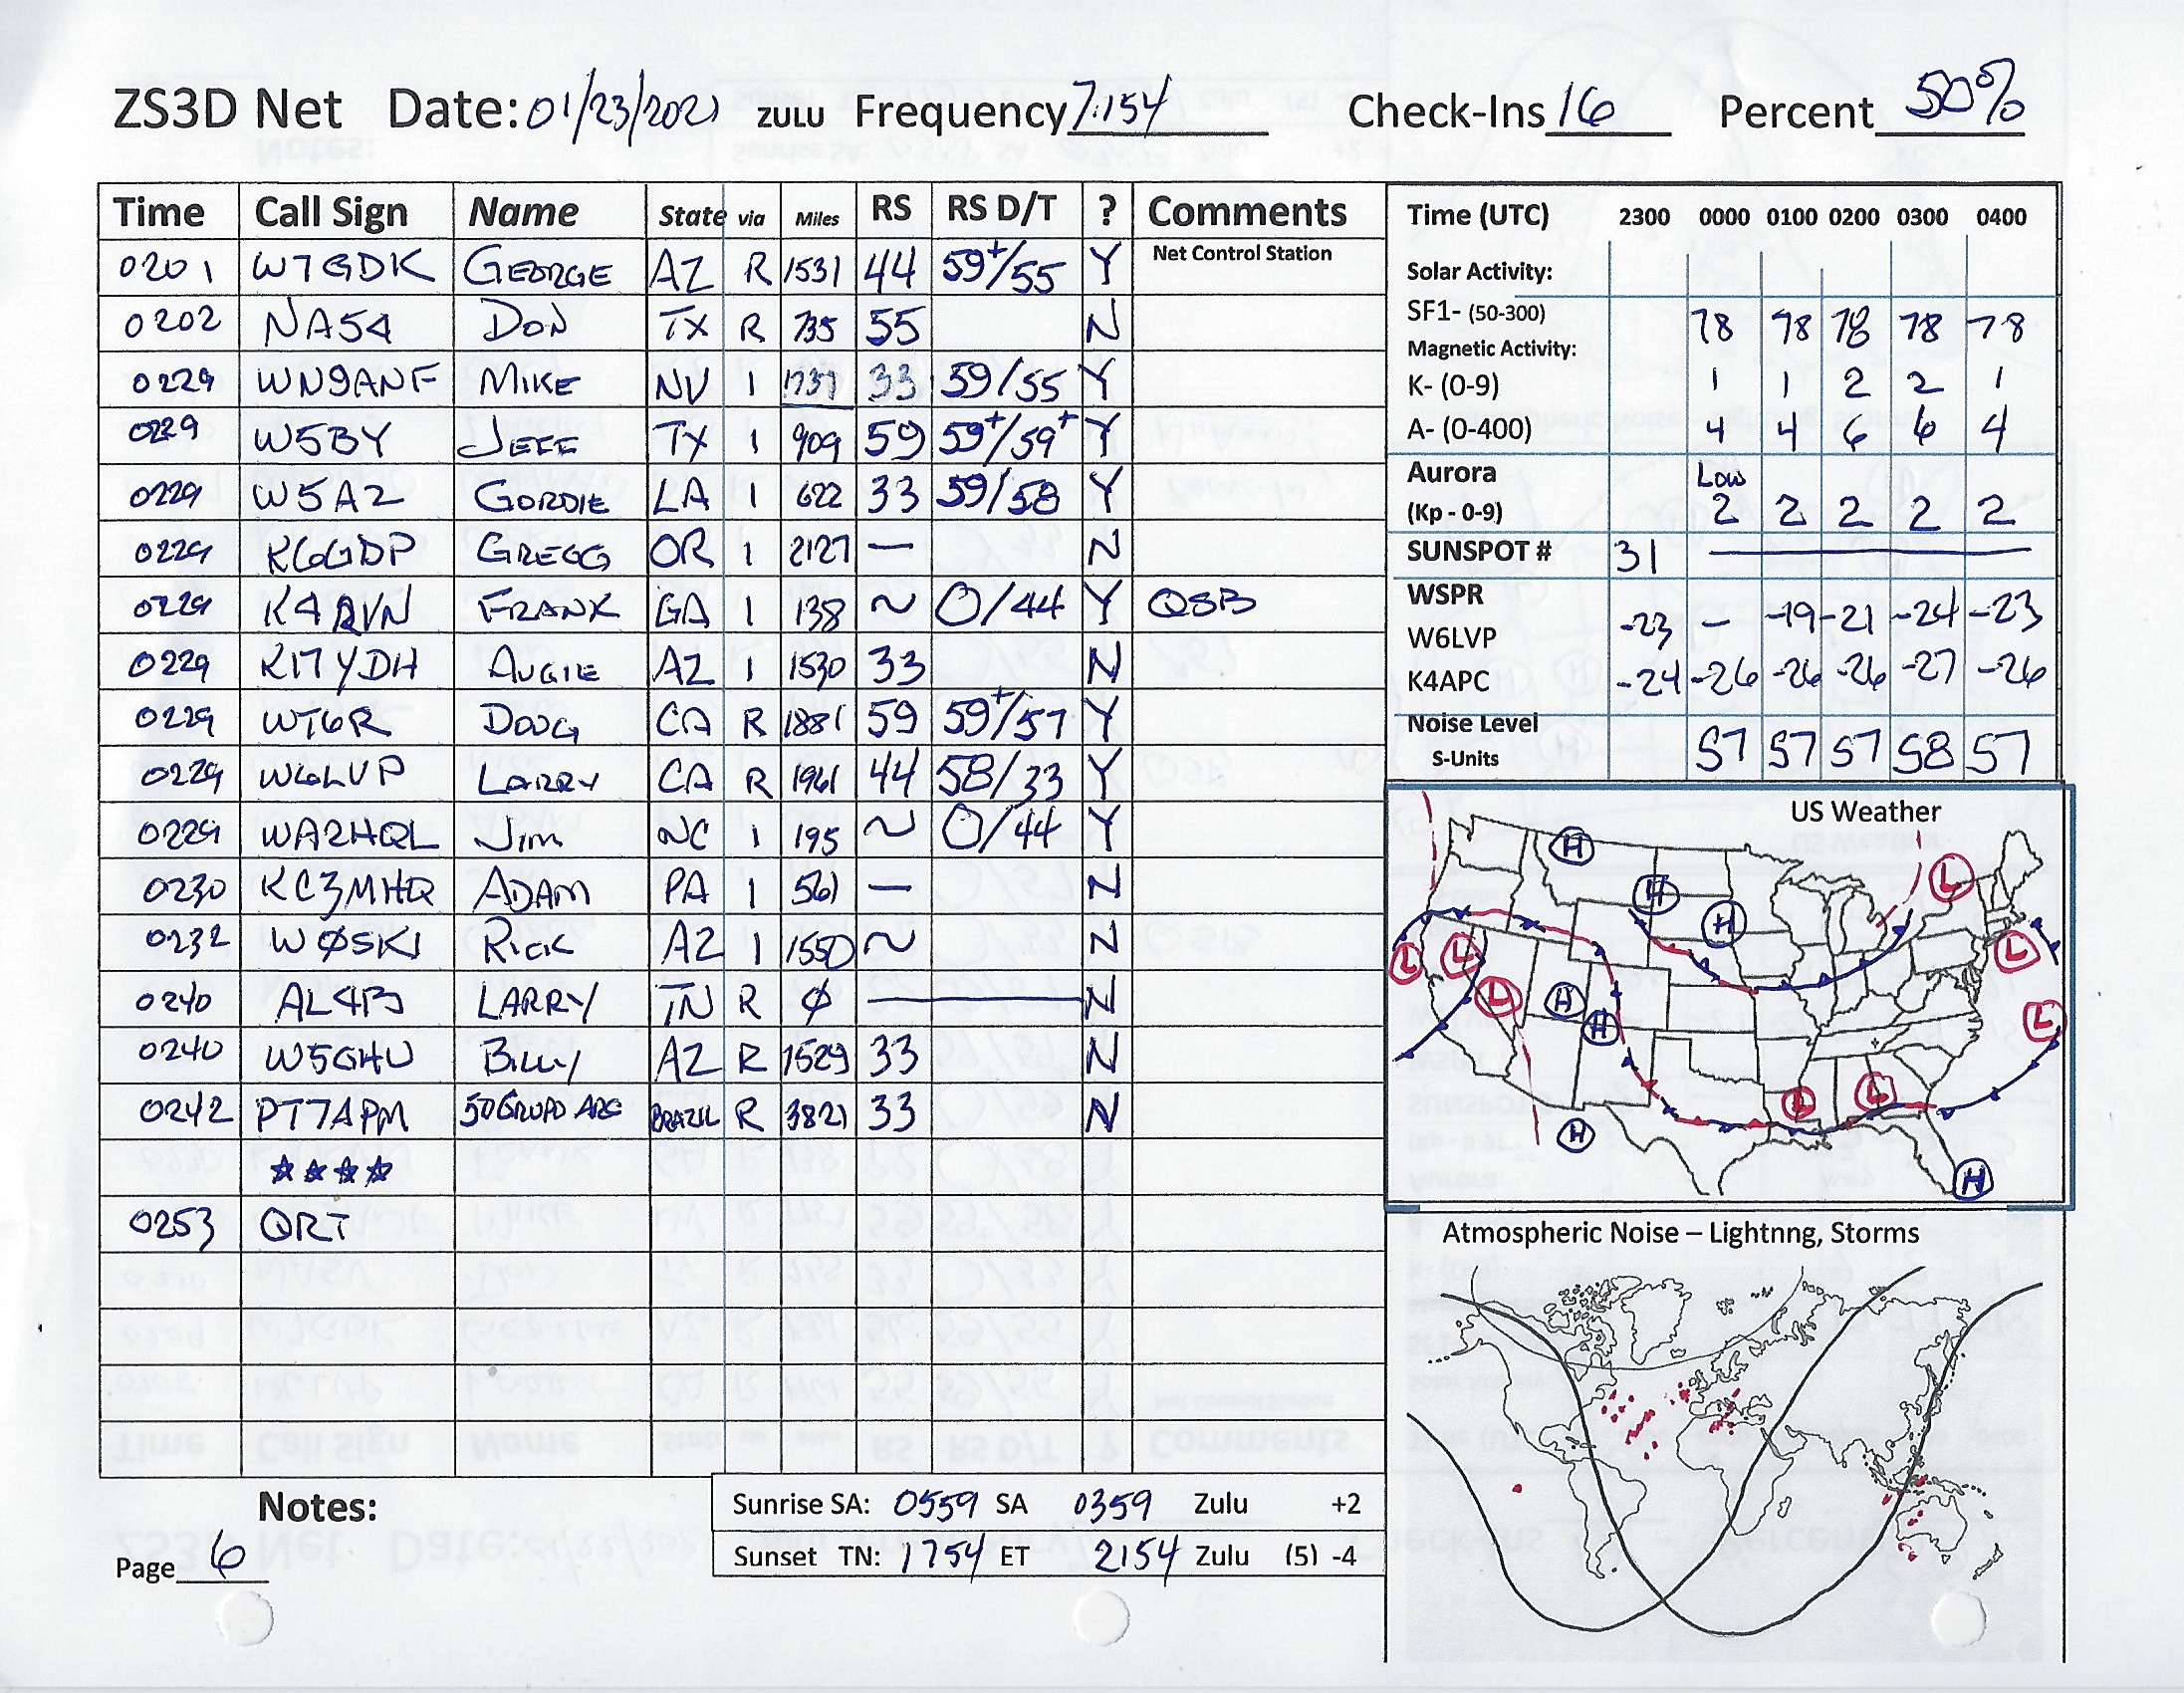 ZS3D Net Date: 01/23/2021 ZULU Frequency 7.154 Check-Ins 16 Percent 50%
Time Call Sign Name State via Miles RS RS D/T ? Comments
0201 W7GDK GEORGE AZ R 1531 44 59+/55 Y Net Control Station
0202 NA5A DON TX R 735 55 N
0229 WN9ANF MIKE NV I 1737 33 59/55 Y
0229 W5BY JEFF TX I 909 59 59+/59+ Y
0229 W5AZ GORDIE LA I 622 33 59/58 Y
0229 K6GDP GREGG OR I 2127 — N
0229 FRANK GA I 138 ~ 0/44 Y QSB
0229 KI7YDH AUGIE AZ I 1530 33 N
0229 WT6R DOUG CA R 1881 59 59+/57 Y
0229 W6LVP LARRY CA R 1961 44 58/33 Y
0229 WA2HQL Jim NC I 195 ~ 0/44 Y
0230 KC3MHQ ADAM PA I 561 — N
0232 WØSKI RICK AZ I 1550 ~ N
0240 LARRY TN R Ø — N
0240 W5GHU BILLY AZ R 1529 33 N
0242 PT7APM BRAZIL R 3821 33 N
☆☆☆☆
0253 QRT
Notes:
Page 6
Sunrise SA: 0559 SA 0359 Zulu +2
Sunset TN: 1754 ET 2154 Zulu (5) -4
Time (UTC) 2300 0000 0100 0200 0300 0400
Solar Activity:
SF1- (50-300) 78 78 78 78 78
Magnetic Activity:
K- (0-9) 1 1 2 2 1
A- (0-400) 4 4 6 6 4
Aurora Low
(Kp - 0-9) 2 2 2 2 2
SUNSPOT # 31
WSPR
W6LVP -23 — -19 -21 -24 -23
K4APC -24 -26 -26 -26 -27 -26
Noise Level
S-Units S7 S7 S7 S8 S7
US Weather
H
L
H
H
L
L
L
L
H
H
L
L
L
H
H
Atmospheric Noise – Lightnng, Storms